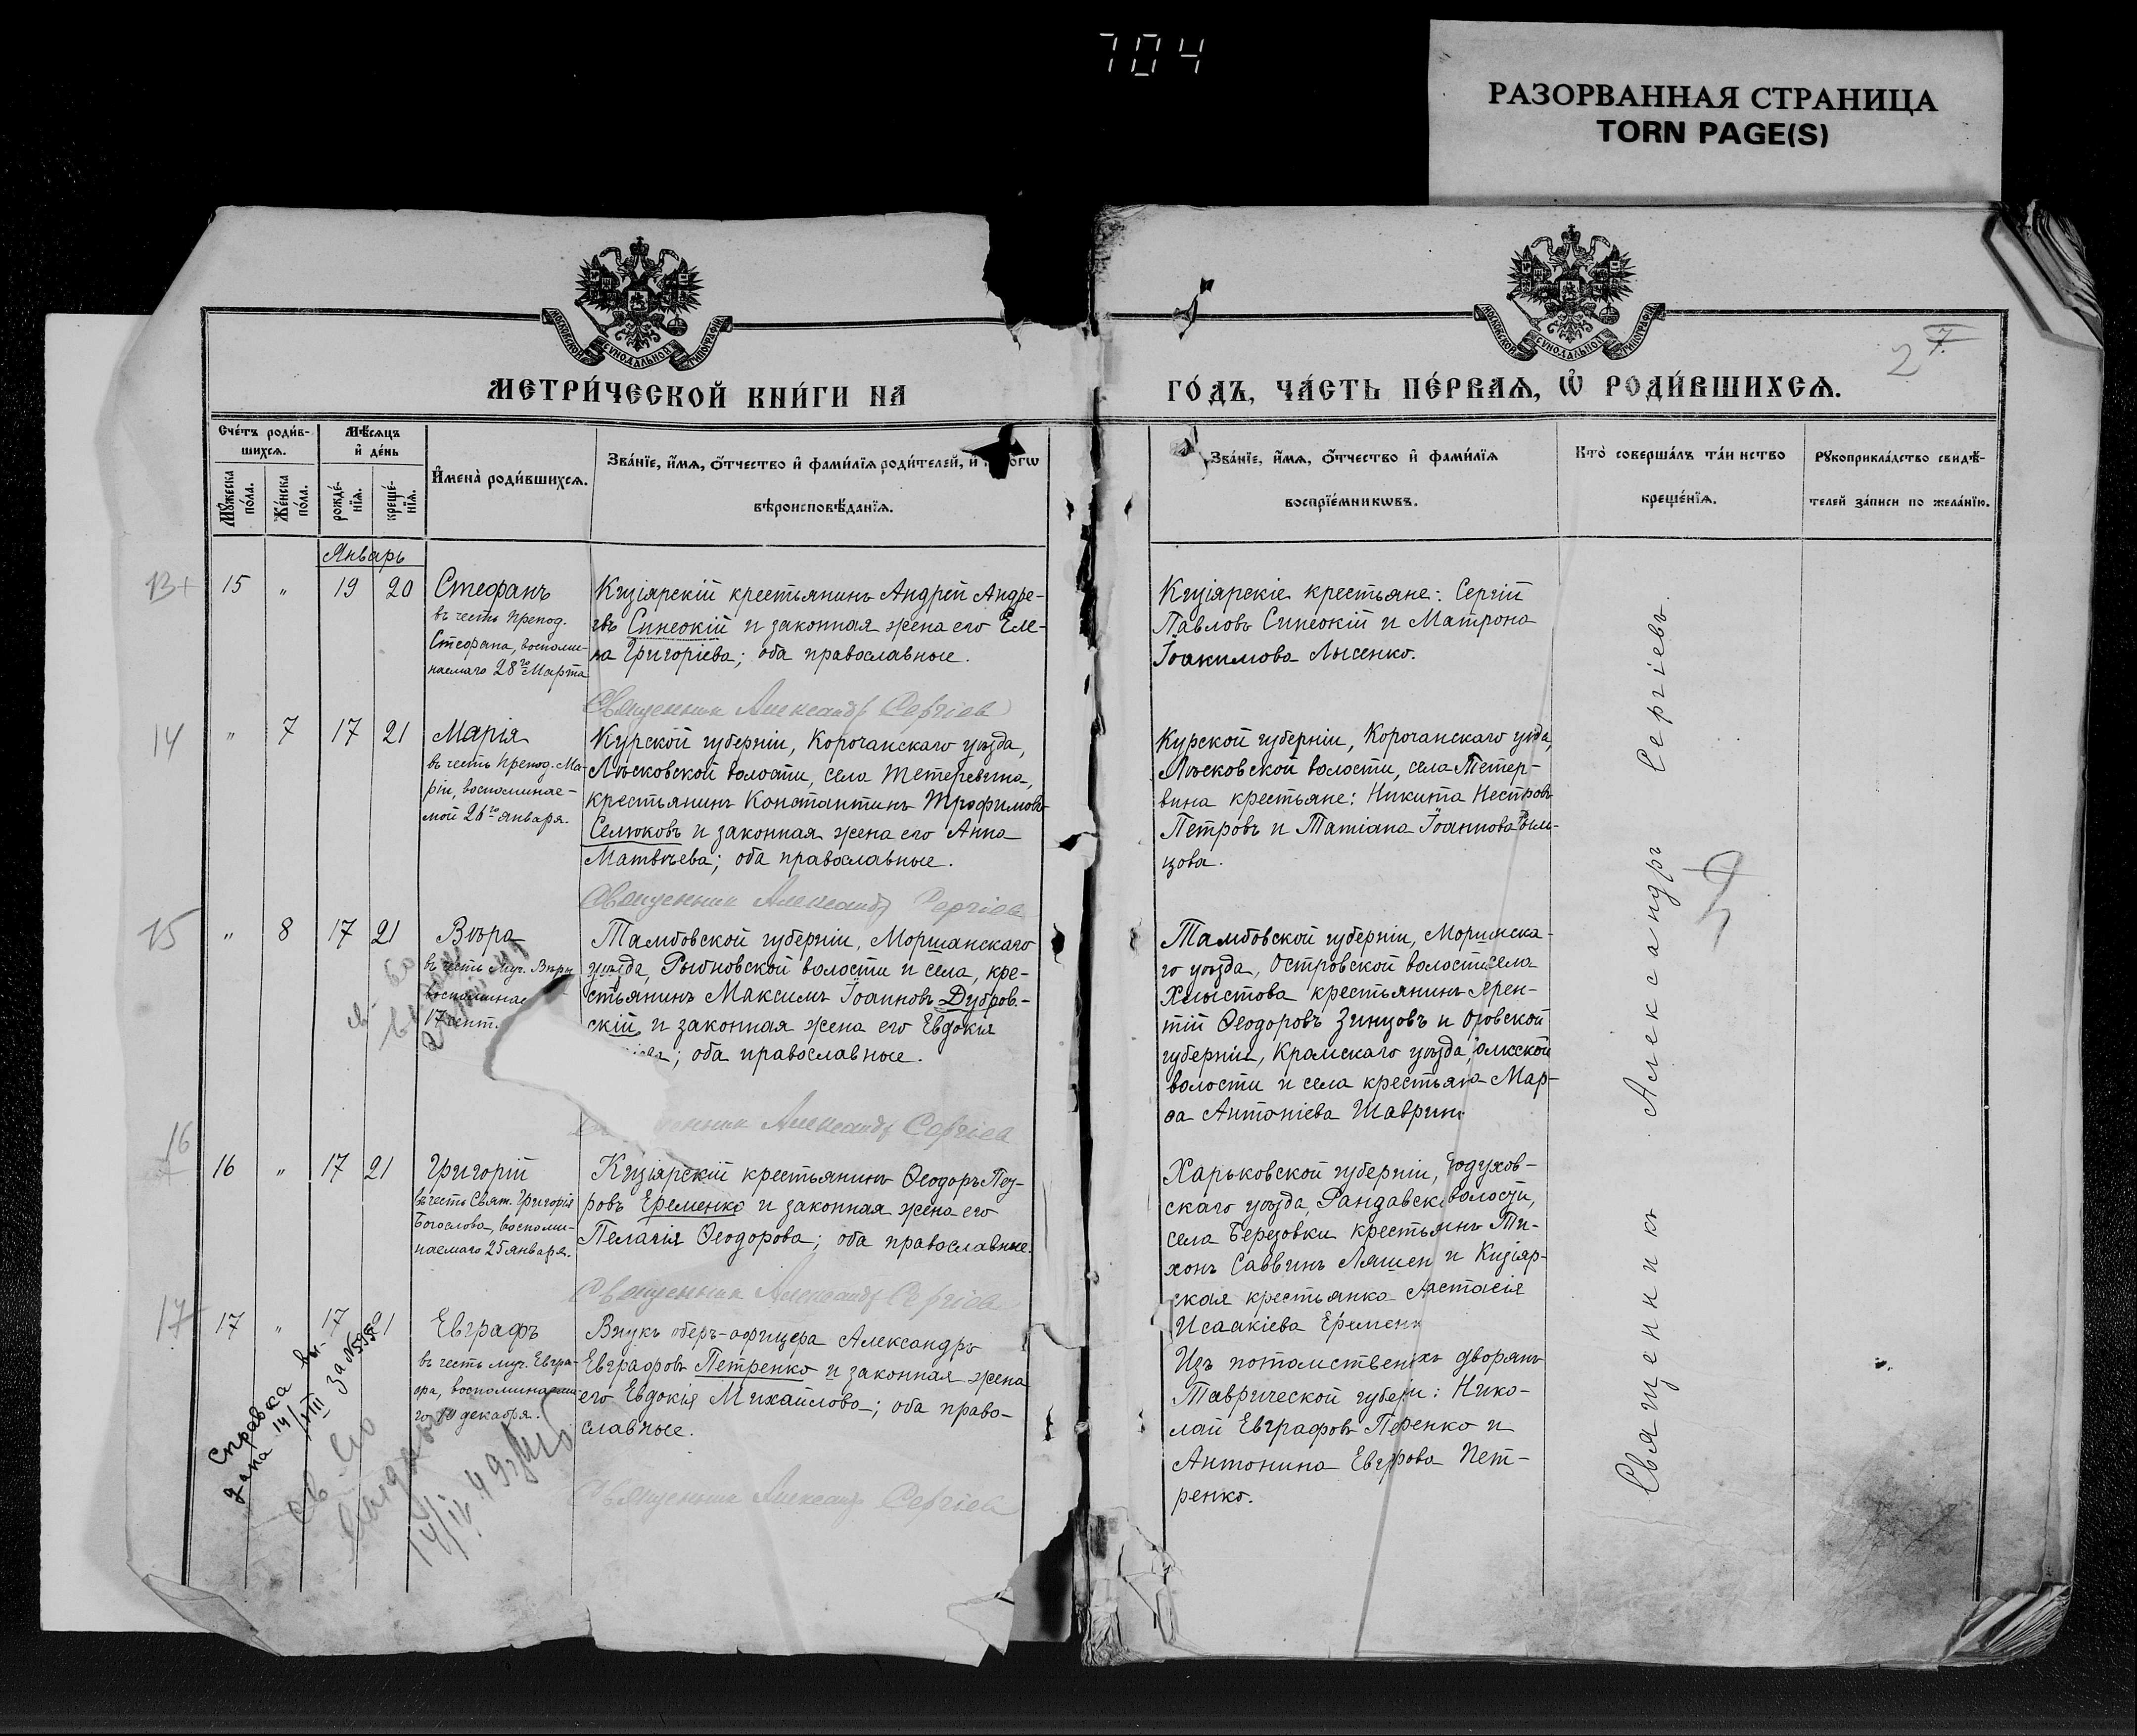 704
РАЗОРВАННАЯ СТРАНИЦА
TORN PAGE(S)
МОСКОВСКОЙ СѴНОДАЛЬНОЙ ТИПОГРАФІИ
МОСКОВСКОЙ СѴНОДАЛЬНОЙ ТИПОГРАФІИ
2 7.
МЕТРИ́ЧЕСКОЙ КНИ́ГИ НА
ГО́ДЪ, ЧА́СТЬ ПЕ́РВАѦ, Ѡ҆ РОДИ́ВШИХСѦ.
Сче́тъ роди́в-
шихсѧ.
Мѣ́сѧцъ
и҆ де́нь
Мꙋ́жеска по́ла.
Же́нска по́ла.
рожде́-нїѧ.
креще́-нїѧ.
И҆мена̀ роди́вшихсѧ.
Зва́нїе, и҆́мѧ, ѻ҆́тчество и҆ фами́лїѧ роди́телей, и҆
вѣроисповѣ́данїѧ.
Зва́нїе, и҆́мѧ, ѻ҆́тчество и҆ фами́лїѧ
воспрїе́мникѡвъ.
Кто̀ соверша́лъ та́инство
креще́нїѧ.
Рꙋкоприкла́дство свидѣ́-
телей за́писи по жела́нїю.
Январь
13+
15 „ 19 20
Стефанъ
въ честь препод.
Стефана, воспоми-
наемаго 28го Марта
Кизіярскій крестьянинъ Андрей Андре-
евъ Синеокій и законная жена его Еле-
на Григоріева; оба православные.
Священникъ Александръ Сергіевъ
Кизіярскіе крестьяне: Сергій
Павловъ Синеокій и Матрона
Іоакимова Лысенко.
14
„ 7 17 21
Марія
въ честь препод. Ма-
ріи, воспоминае-
мой 26го января.
Курской губерніи, Корочанскаго уѣзда,
Лѣсковской волости, села Тетеревина,
крестьянинъ Константинъ Трофимовъ
Селюковъ и законная жена его Анна
Матвѣева; оба православные.
Священникъ Александръ Сергіевъ
Курской губерніи, Корочанскаго уѣзда,
Лѣсковской волости, села Тетер-
вина крестьяне: Никита
Петровъ и Татіана Іоаннова
цова.
15
„ 8 17 21
Вѣра
въ честь муч. Вѣры
воспоминае
17 сент.
Тамбовской губерніи, Моршанскаго
уѣзда, Рыбновской волости и села, кре-
стьянинъ Максимъ Іоанновъ Дубров-
скій и законная жена его Евдокія
; оба православные.
Александръ Сергіевъ
Тамбовской губерніи, Моршанска-
го уѣзда, Островской волости села
Хлыстова крестьянинъ
тій Ѳеодоровъ Зинцовъ и Орловской
губерніи, Кромскаго уѣзда,
волости и села крестьянка Мар-
ѳа Антоніева Шаврин
16
16 „ 17 21
Григорій
въ честь Свят. Григорія
Богослова, воспоми-
наемаго 25 января.
Кизіярскій крестьянинъ Ѳеодоръ Пет-
ровъ Еременко и законная жена его
Пелагія Ѳеодорова; оба православные.
Священникъ Александръ Сергіевъ
Харьковской губерніи, Богодухов-
скаго уѣзда, волости,
села Березовки крестьянинъ Ти-
хонъ Саввинъ Ляшен и Кизіяр-
ская крестьянка Анастасія
Исаакіева Еремен
17
17 „ 17 21
Евграфъ
въ честь муч. Евгра-
фа, воспоминаема-
го 10 декабря.
Внукъ оберъ-офицера Александръ
Евграфовъ Петренко и законная жена
его Евдокія Михайлова; оба право-
славные.
Священникъ Александръ Сергіевъ
Изъ потомственныхъ дворянъ
Таврической губерн: Нико-
лай Евграфовъ Петренко и
Антонина Евграфова Пет-
ренко.
Священникъ Александръ Сергіевъ.
Справка вы-
дана 14/VIII за №